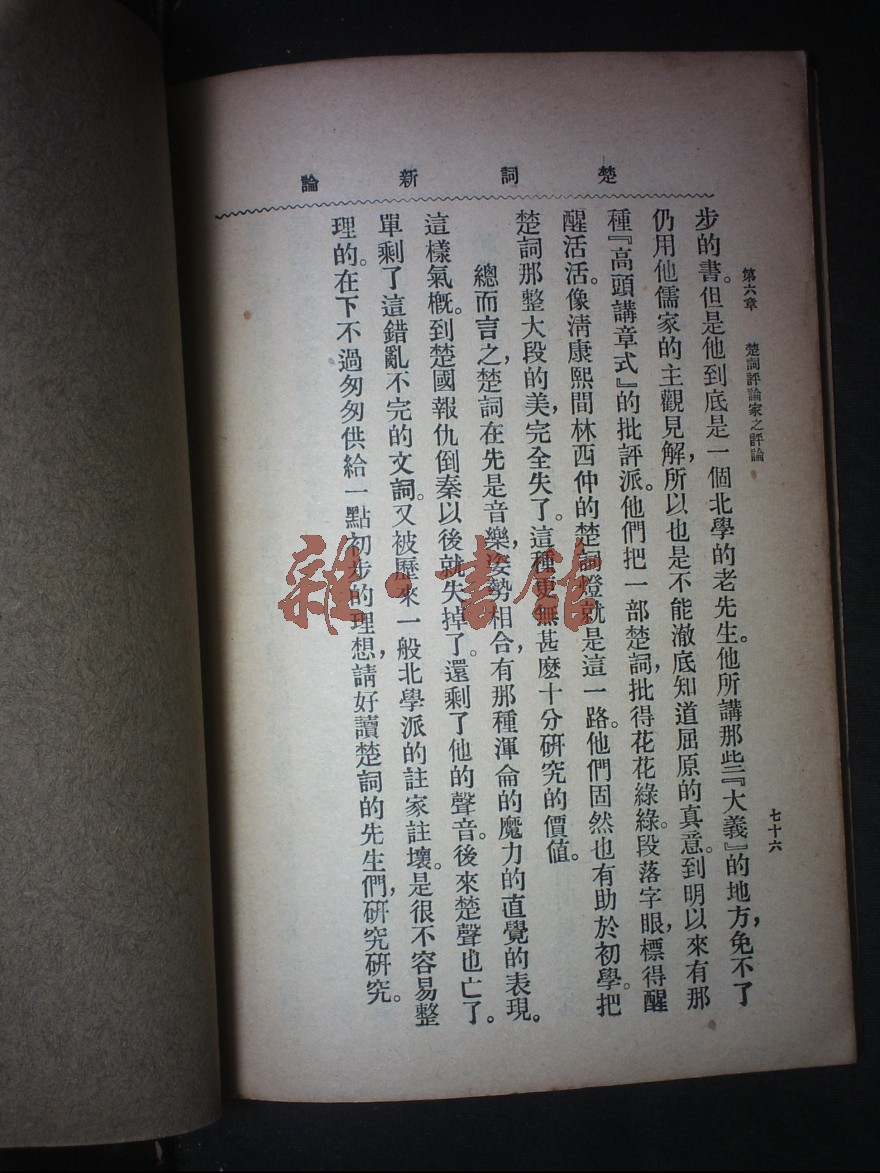 楚詞新論
第六章 楚詞評論家之評論 七十六
步的書。但是他到底是一個北學的老先生。他所講那些『大義』的地方，免不了
仍用他儒家的主觀見解，所以也是不能澈底知道屈原的真意。到明以來有那
種『高頭講章式』的批評派。他們把一部楚詞，批得花花綠綠。段落字眼，標得醒
醒活活。像清康熙間林西仲的楚詞燈就是這一路。他們固然也有助於初學。把
楚詞那整大段的美，完全失了。這種更無甚麼十分研究的價值。
總而言之，楚詞在先是音樂，姿勢，相合，有那種渾侖的魔力的直覺的表現。
這樣氣概。到楚國報仇倒秦以後就失掉了。還剩了他的聲音。後來楚聲也亡了。
單剩了這錯亂不完的文詞。又被歷來一般北學派的註家註壞。是很不容易整
理的。在下不過匆匆供給一點初步的理想，請好讀楚詞的先生們，研究研究。
雜·書館